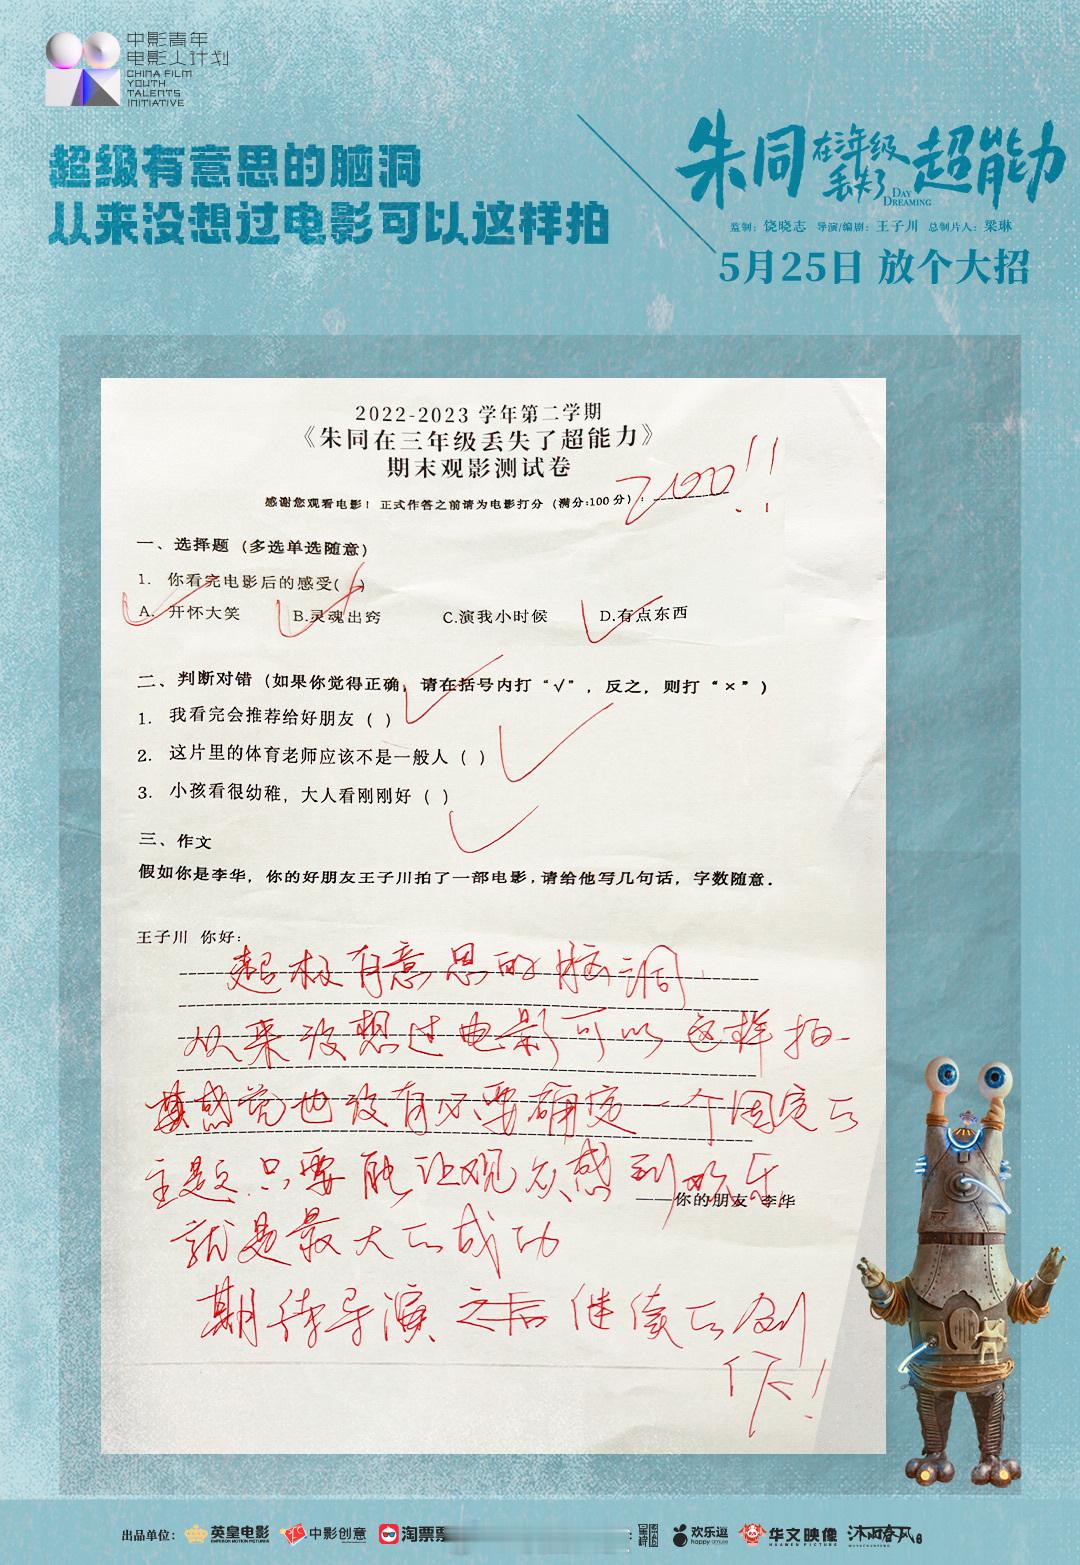 中影青年
电影人计划
CHINA FILM
YOUTH
TALENTS
INITIATIVE
超级有意思的脑洞
从来没想过电影可以这样拍
朱同在三年级丢失了超能力
DAY
DREAMING
监制：饶晓志 导演/编剧：王子川 总制片人：梁琳
5月25日 放个大招
2022-2023 学年第二学期
《朱同在三年级丢失了超能力》
期末观影测试卷
感谢您观看电影！正式作答之前请为电影打分（满分:100 分）: 200!!
一、选择题（多选单选随意）
1. 你看完电影后的感受( )
A. 开怀大笑 B.灵魂出窍 C.演我小时候 D.有点东西
二、判断对错（如果你觉得正确，请在括号内打“√”，反之，则打“×”）
1. 我看完会推荐给好朋友（ ）
2. 这片里的体育老师应该不是一般人（ ）
3. 小孩看很幼稚，大人看刚刚好（ ）
三、作文
假如你是李华，你的好朋友王子川拍了一部电影,请给他写几句话，字数随意.
王子川 你好:
超级有意思的脑洞
从来没想过电影可以这样拍
感觉也没有必要确定一个固定的
主题 只要能让观众感到欢乐
——你的朋友 李华
就是最大的成功
期待导演之后继续的创
作！
出品单位：英皇电影 EMPEROR MOTION PICTURES 中影创意 淘票票 欢乐逗 happy amuse 华文映像 HUAWEN PICTURE 沐雨春风